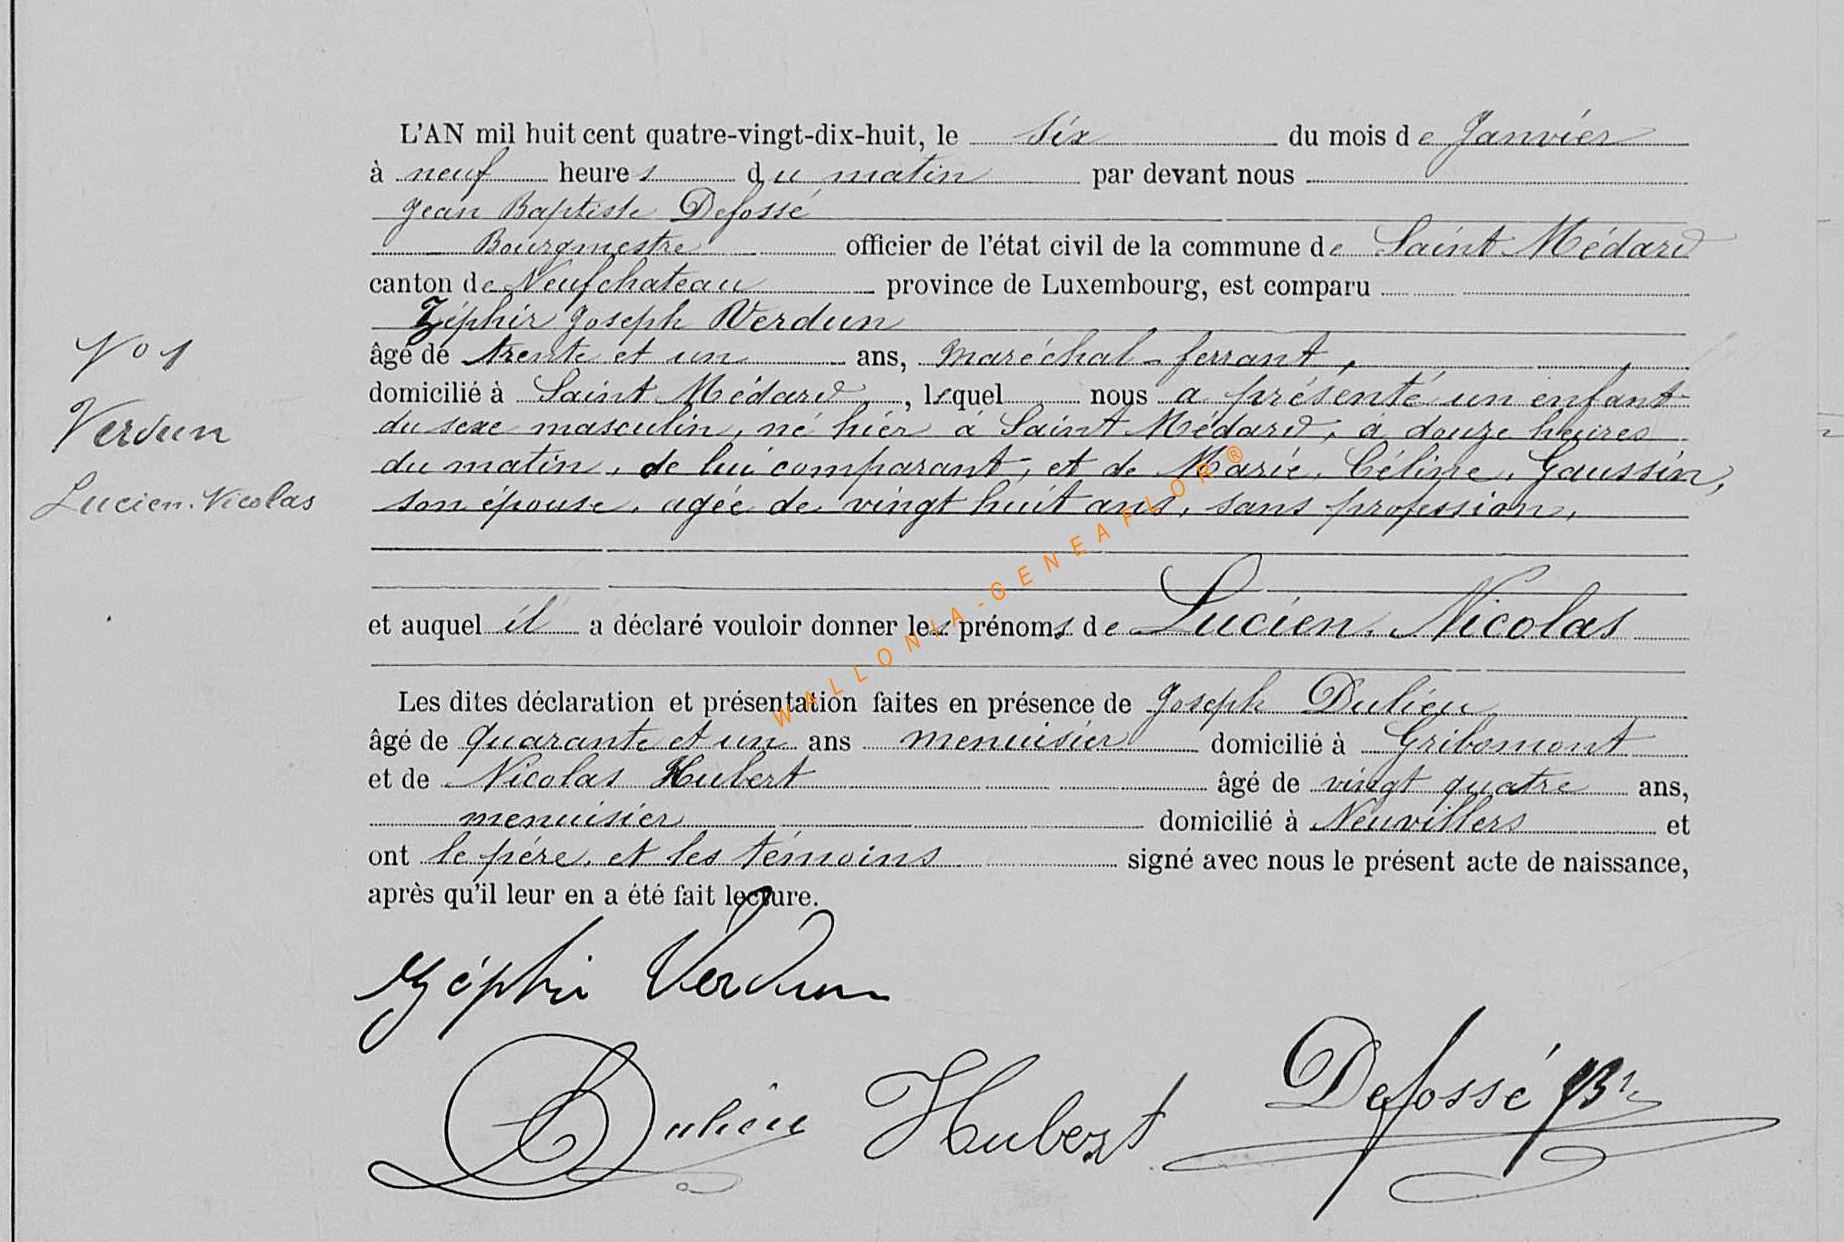 L'AN mil huit cent quatre-vingt-dix-huit, le six du mois de Janvier
à neuf heures du matin par devant nous
Jean Baptiste Defossé
Bourgmestre officier de l'état civil de la commune de Saint Médard
canton de Neufchateau province de Luxembourg, est comparu
Zéphir Joseph Verdun
âgé de trente et un ans, maréchal-ferrant,
domicilié à Saint Médard, lequel nous a présenté un enfant
du sexe masculin, né hier à Saint Médard, à douze heures
du matin, de lui comparant, et de Marie, Céline, Gaussin,
son épouse, agée de vingt huit ans, sans profession,
et auquel il a déclaré vouloir donner les prénoms de Lucien, Nicolas
Les dites déclaration et présentation faites en présence de Joseph Dulieu
âgé de quarante et un ans menuisier domicilié à Gribomont
et de Nicolas Hubert âgé de vingt quatre ans,
menuisier domicilié à Neuvillers et
ont le père, et les témoins signé avec nous le présent acte de naissance,
après qu'il leur en a été fait lecture.
No 1
Verdun
Lucien. Nicolas
Zéphir Verdun
Dulieu Hubert Defossé
WALLONIA-GENEAFLOR®